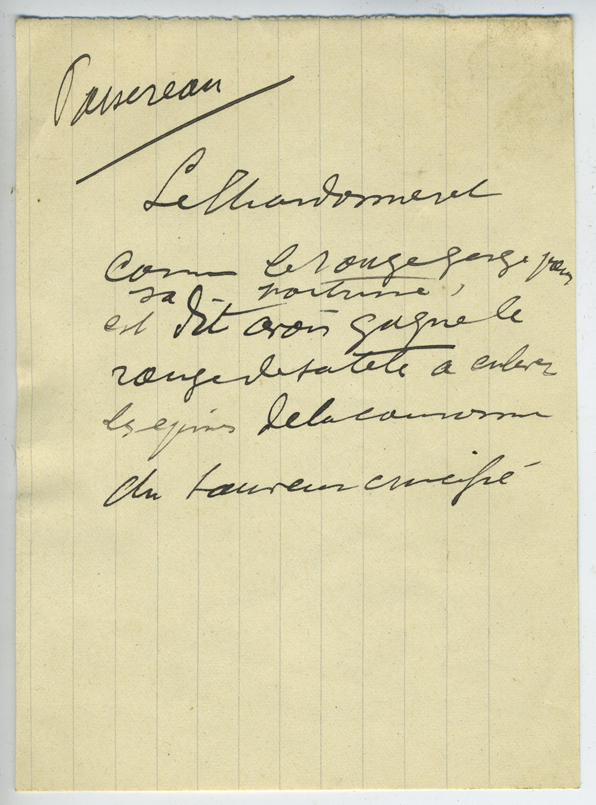 Passereau
Le Chardonneret
comme le rouge gorge pour
sa poitrine,
est dit avoir gagné le
rouge de sa tête a enlever
les epines de la couronne
du sauveur crucifié